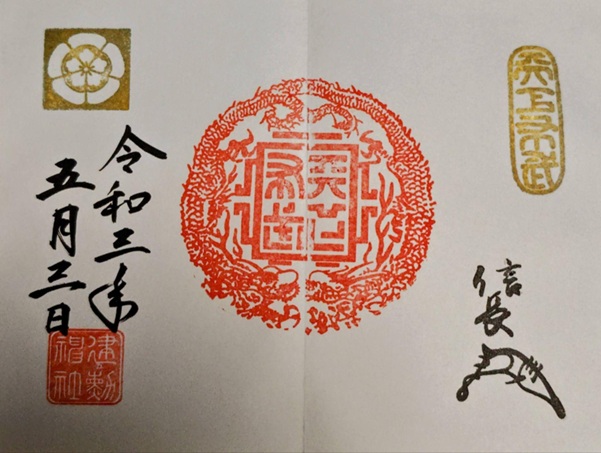 天下布武
信長
天下
布武
令和三年
五月三日
建勲
神社